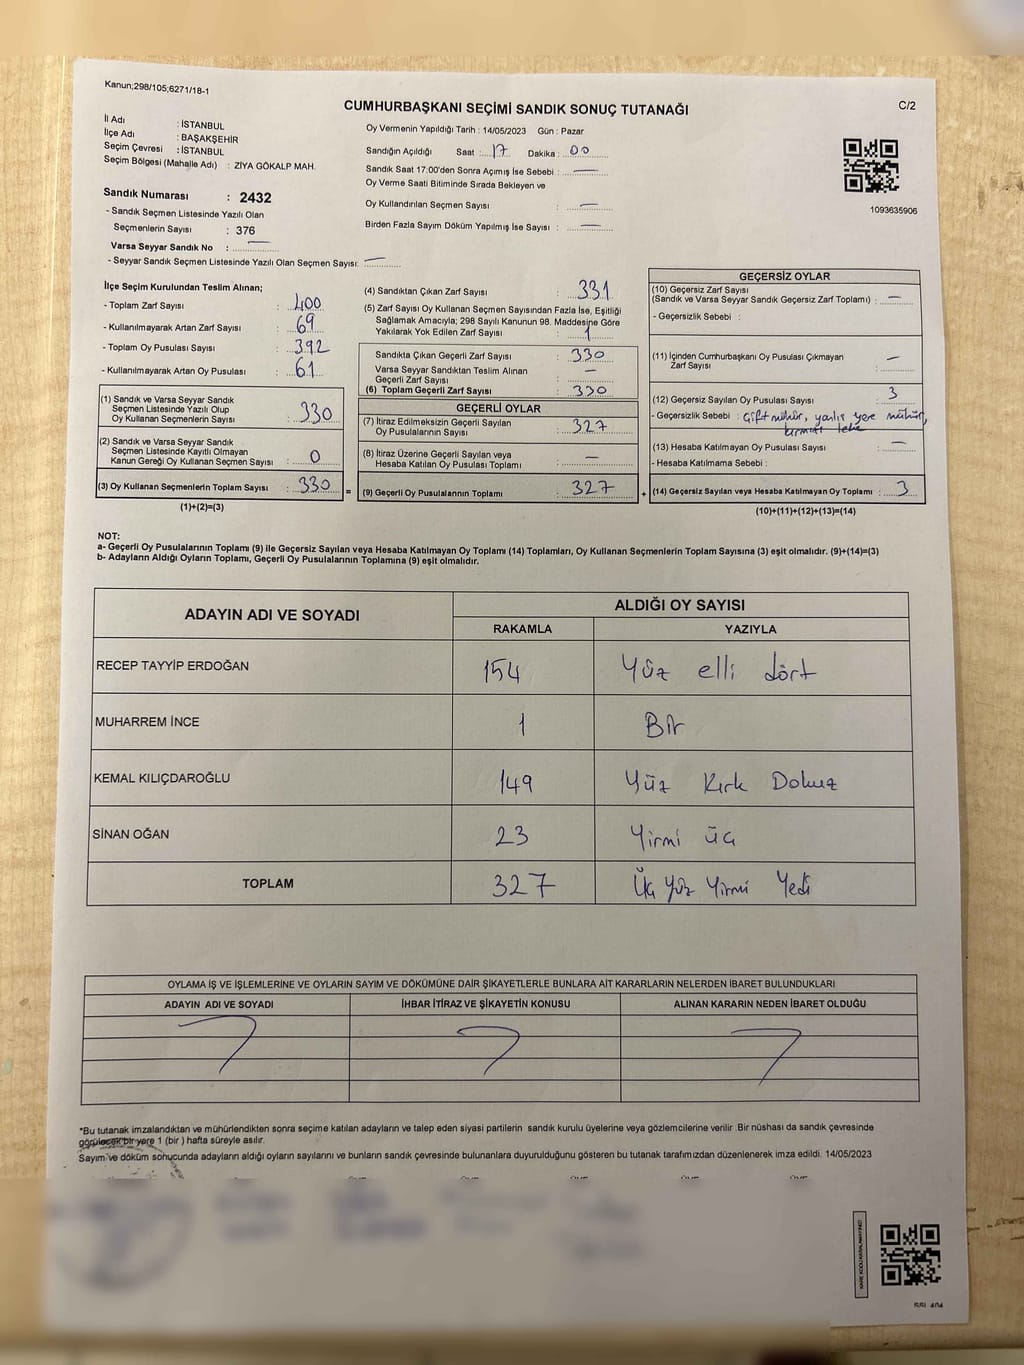 Kanun;298/105;6271/18-1
CUMHURBAŞKANI SEÇİMİ SANDIK SONUÇ TUTANAĞI
C/2
İl Adı : İSTANBUL
İlçe Adı : BAŞAKŞEHİR
Seçim Çevresi : İSTANBUL
Seçim Bölgesi (Mahalle Adı) : ZİYA GÖKALP MAH.
Sandık Numarası : 2432
- Sandık Seçmen Listesinde Yazılı Olan
Seçmenlerin Sayısı : 376
Varsa Seyyar Sandık No : —
- Seyyar Sandık Seçmen Listesinde Yazılı Olan Seçmen Sayısı: —
Oy Vermenin Yapıldığı Tarih : 14/05/2023 Gün : Pazar
Sandığın Açıldığı Saat : 17 Dakika : 00
Sandık Saat 17.00'den Sonra Açımış İse Sebebi : —
Oy Verme Saati Bitiminde Sırada Bekleyen ve
Oy Kullandırılan Seçmen Sayısı : —
Birden Fazla Sayım Döküm Yapılmış İse Sayısı : —
1093635906
İlçe Seçim Kurulundan Teslim Alınan;
- Toplam Zarf Sayısı : 400
- Kullanılmayarak Artan Zarf Sayısı : 69
- Toplam Oy Pusulası Sayısı : 392
- Kullanılmayarak Artan Oy Pusulası : 61
(1) Sandık ve Varsa Seyyar Sandık
Seçmen Listesinde Yazılı Olup
Oy Kullanan Seçmenlerin Sayısı : 330
(2) Sandık ve Varsa Seyyar Sandık
Seçmen Listesinde Kayıtlı Olmayan
Kanun Gereği Oy Kullanan Seçmen Sayısı : 0
(3) Oy Kullanan Seçmenlerin Toplam Sayısı : 330 =
(1)+(2)=(3)
(4) Sandıktan Çıkan Zarf Sayısı : 331
(5) Zarf Sayısı Oy Kullanan Seçmen Sayısından Fazla İse, Eşitliği
Sağlamak Amacıyla; 298 Sayılı Kanunun 98. Maddesine Göre
Yakılarak Yok Edilen Zarf Sayısı : 1
Sandıkta Çıkan Geçerli Zarf Sayısı : 330
Varsa Seyyar Sandıktan Teslim Alınan
Geçerli Zarf Sayısı : —
(6) Toplam Geçerli Zarf Sayısı : 330
GEÇERLİ OYLAR
(7) İtiraz Edilmeksizin Geçerli Sayılan
Oy Pusulalarının Sayısı : 327
(8) İtiraz Üzerine Geçerli Sayılan veya
Hesaba Katılan Oy Pusulası Toplamı : —
(9) Geçerli Oy Pusulalarının Toplamı : 327 +
GEÇERSİZ OYLAR
(10) Geçersiz Zarf Sayısı
(Sandık ve Varsa Seyyar Sandık Geçersiz Zarf Toplamı) : —
- Geçersizlik Sebebi :
(11) İçinden Cumhurbaşkanı Oy Pusulası Çıkmayan
Zarf Sayısı : —
(12) Geçersiz Sayılan Oy Pusulası Sayısı : 3
- Geçersizlik Sebebi : Çift mühür, yanlış yere mühür,
kırmızı leke
(13) Hesaba Katılmayan Oy Pusulası Sayısı : —
- Hesaba Katılmama Sebebi :
(14) Geçersiz Sayılan veya Hesaba Katılmayan Oy Toplamı : 3
(10)+(11)+(12)+(13)=(14)
NOT:
a- Geçerli Oy Pusulalarının Toplamı (9) ile Geçersiz Sayılan veya Hesaba Katılmayan Oy Toplamı (14) Toplamları, Oy Kullanan Seçmenlerin Toplam Sayısına (3) eşit olmalıdır. (9)+(14)=(3)
b- Adayların Aldığı Oyların Toplamı, Geçerli Oy Pusulalarının Toplamına (9) eşit olmalıdır.
ADAYIN ADI VE SOYADI
ALDIĞI OY SAYISI
RAKAMLA YAZIYLA
RECEP TAYYİP ERDOĞAN 154 Yüz elli dört
MUHARREM İNCE 1 Bir
KEMAL KILIÇDAROĞLU 149 Yüz Kırk Dokuz
SİNAN OĞAN 23 Yirmi üç
TOPLAM 327 Üç Yüz Yirmi Yedi
OYLAMA İŞ VE İŞLEMLERİNE VE OYLARIN SAYIM VE DÖKÜMÜNE DAİR ŞİKAYETLERLE BUNLARA AİT KARARLARIN NELERDEN İBARET BULUNDUKLARI
ADAYIN ADI VE SOYADI İHBAR İTİRAZ VE ŞİKAYETİN KONUSU ALINAN KARARIN NEDEN İBARET OLDUĞU
*Bu tutanak imzalandıktan ve mühürlendikten sonra seçime katılan adayların ve talep eden siyasi partilerin sandık kurulu üyelerine veya gözlemcilerine verilir .Bir nüshası da sandık çevresinde
görülecek bir yere 1 (bir ) hafta süreyle asılır.
Sayım ve döküm sonucunda adayların aldığı oyların sayılarını ve bunların sandık çevresinde bulunanlara duyurulduğunu gösteren bu tutanak tarafımızdan düzenlenerek imza edildi. 14/05/2023